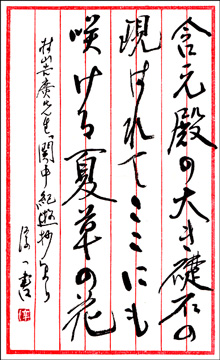 含元殿の大き礎石の
現はれてここにも
咲ける夏草の花
村山吉廣先生、関中紀遊抄より
一書